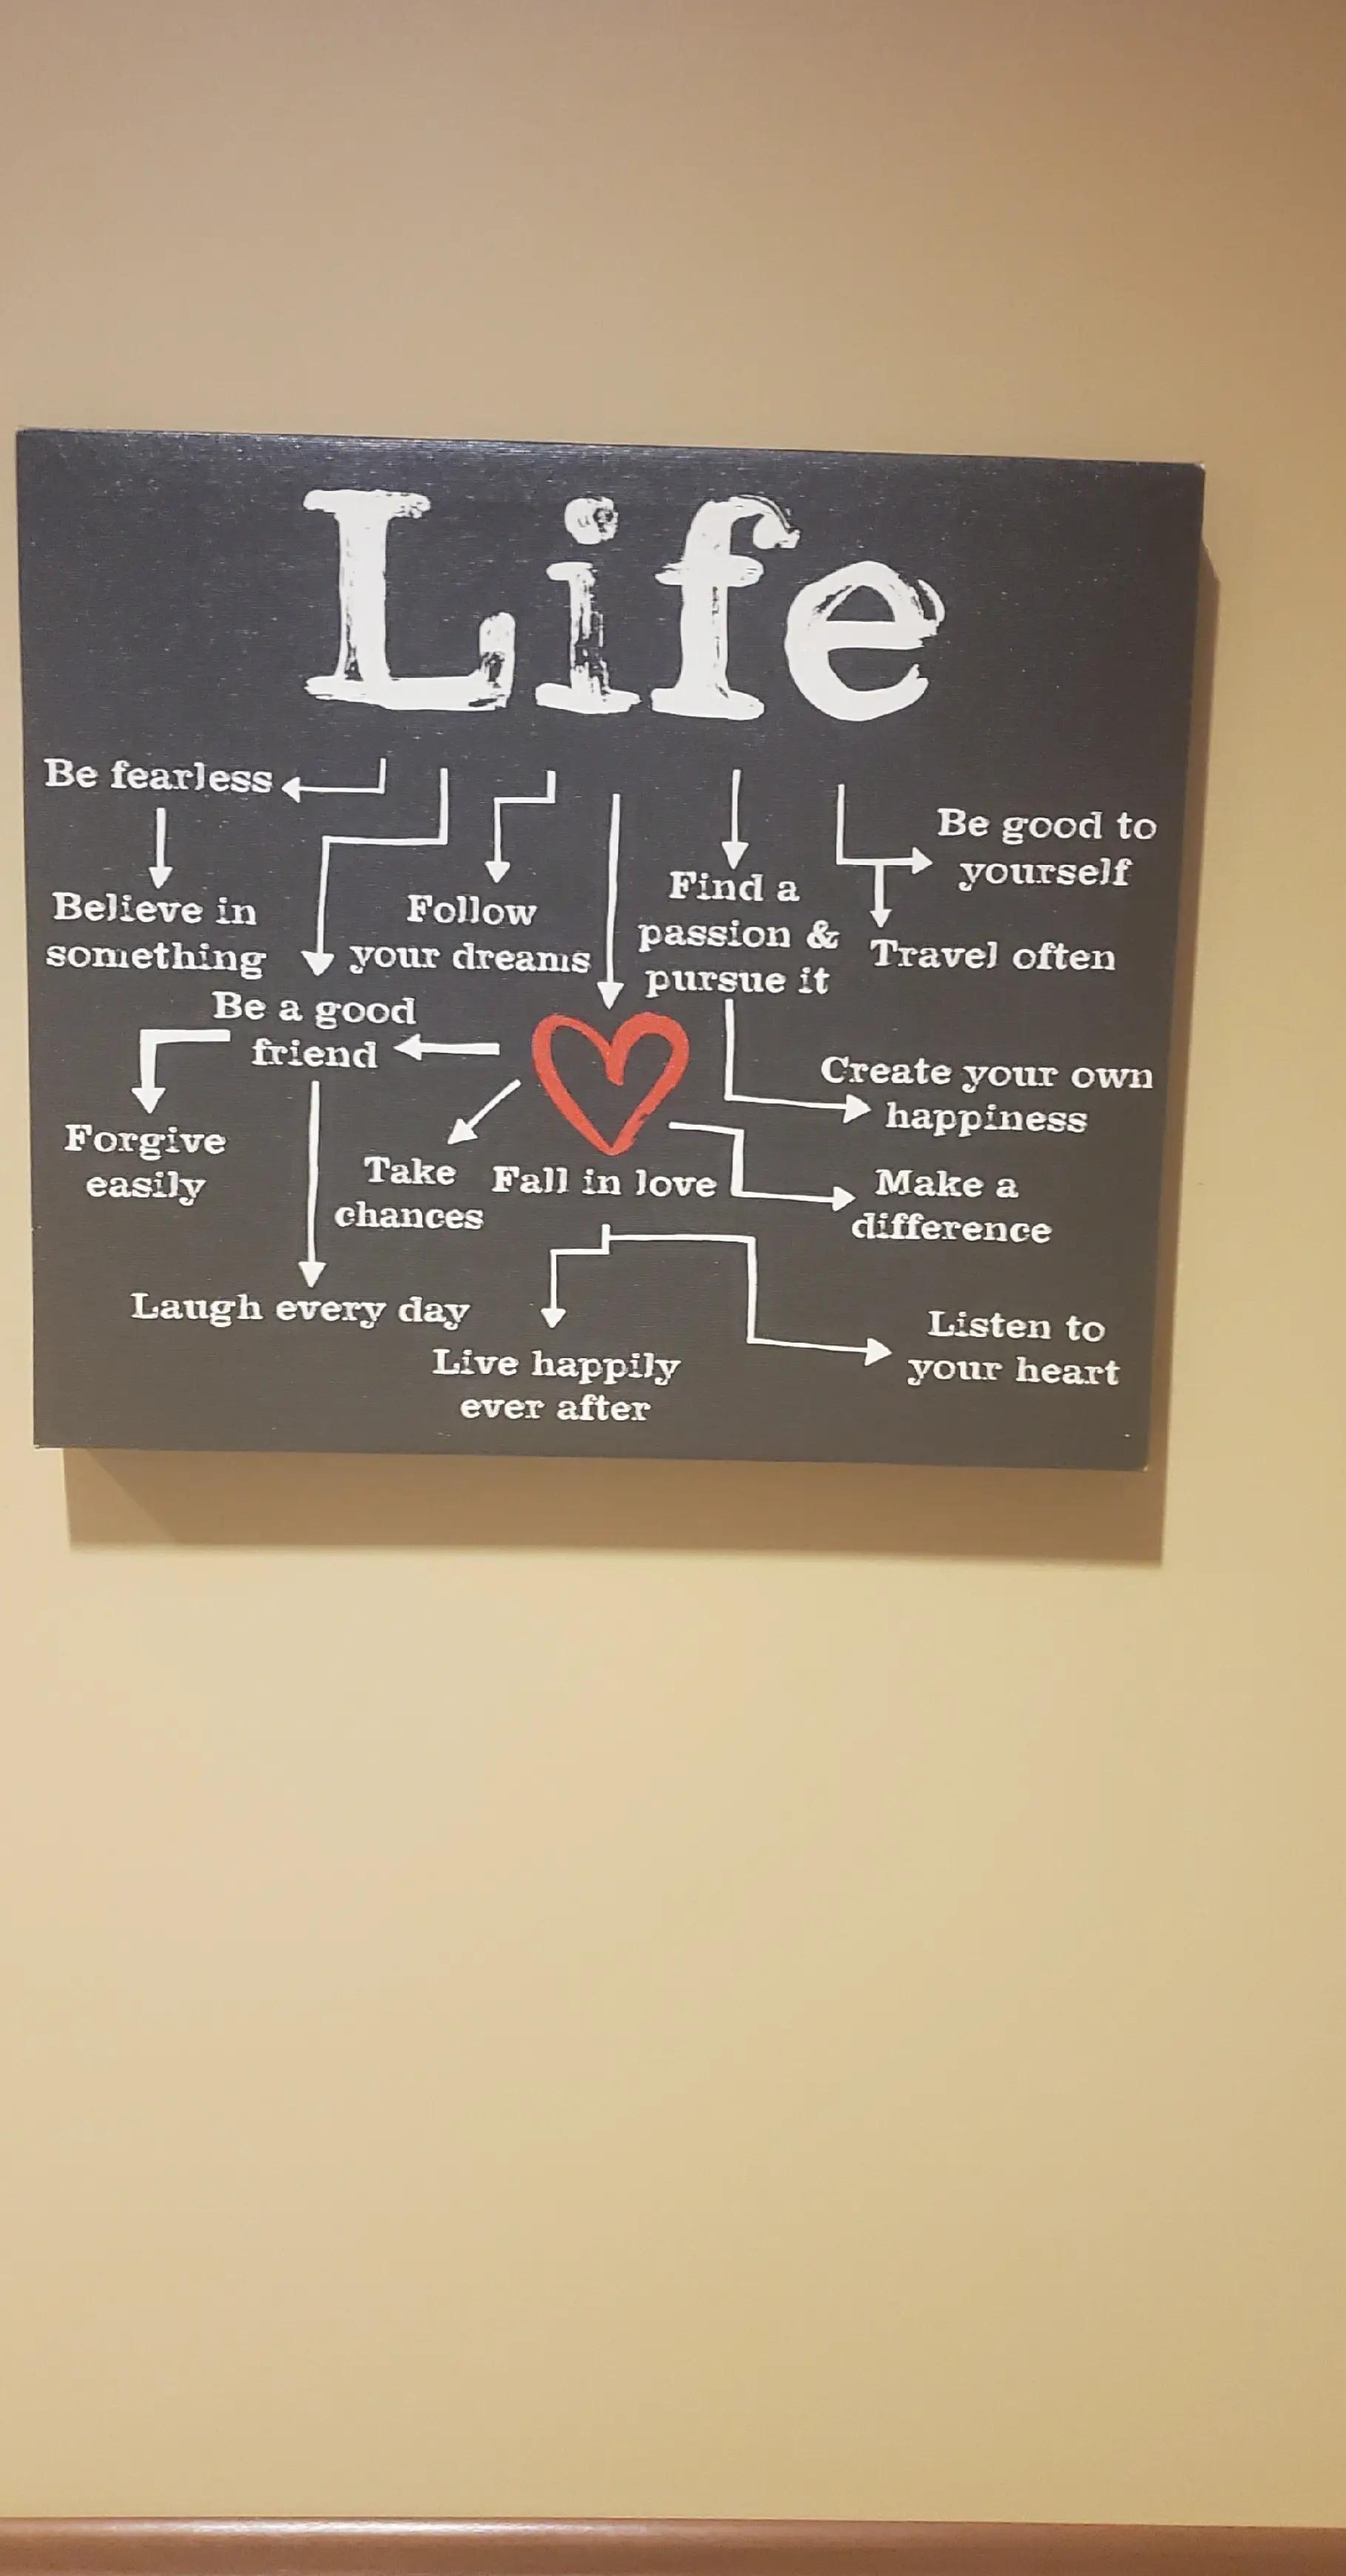 Life
Be fearless
Believe in
something
Follow
your dreams
Find a
passion &
pursue it
Be good to
yourself
Travel often
Be a good
friend
Forgive
easily
Take
chances
Fall in love
Create your own
happiness
Make a
difference
Laugh every day
Live happily
ever after
Listen to
your heart